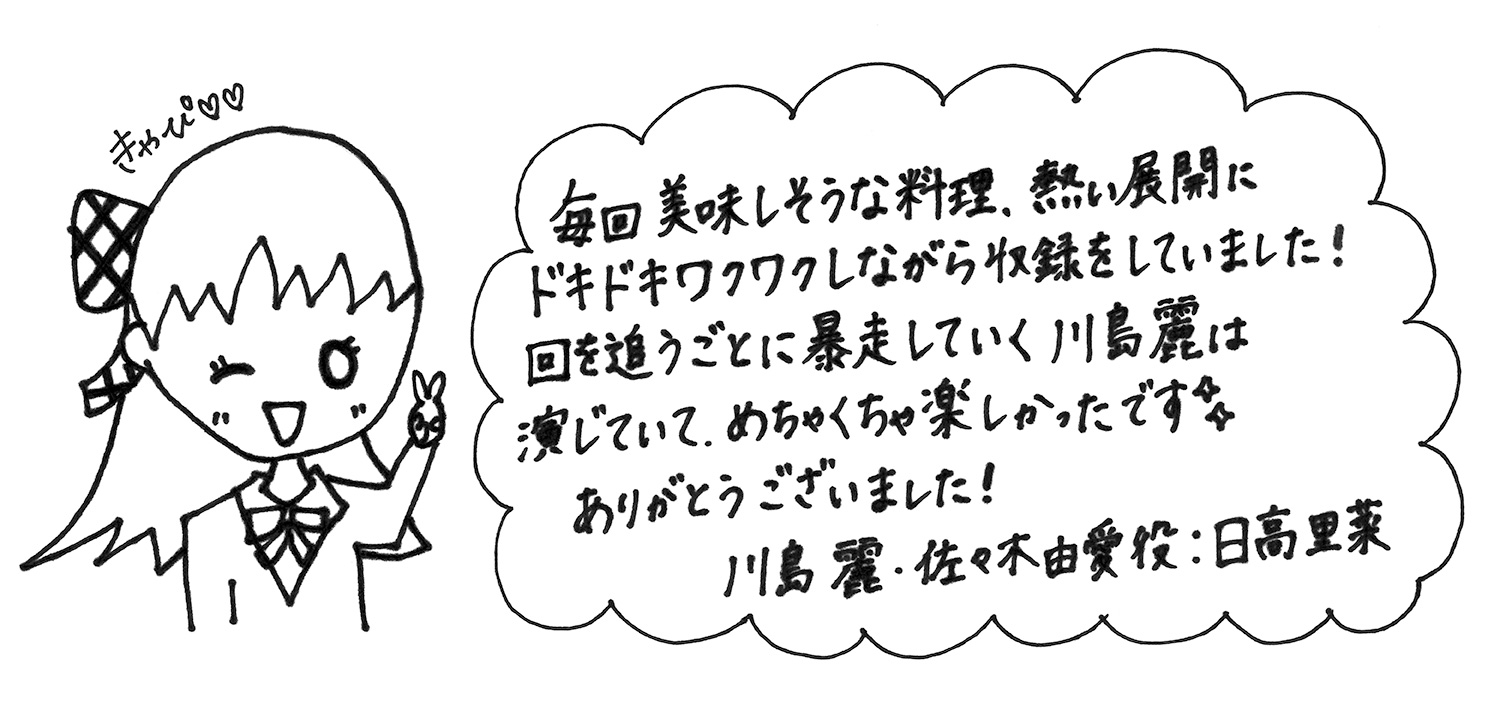 きゃぴ♡♡
毎回美味しそうな料理、熱い展開に
ドキドキワクワクしながら収録をしていました！
回を追うごとに暴走していく川島麗は
演じていて、めちゃくちゃ楽しかったです✧✧
ありがとうございました！
川島麗・佐々木由愛役：日高里菜